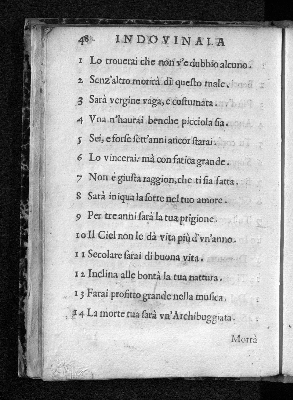 48 INDOVINALA
1 Lo trouerai che non v'e dubbio alcuno.
2 Senz'altro morirà di questo male.
3 Sarà vergine vaga, e costumata.
4 Vna n'haurai benche picciola sia.
5 Sei, e forse sett'anni ancor starai.
6 Lo vincerai mà con fatica grande.
7 Non è giusta raggion, che ti sia fatta.
8 Sarà iniqua la sorte nel tuo amore.
9 Per tre anni sarà la tua prigione.
10 Il Ciel non le dà vita più d'vn'anno.
11 Secolare sarai di buona vita.
12 Inclina alle bontà la tua nattura.
13 Farai profitto grande nella musica.
14 La morte tua sarà vn'Archibuggiata.
Morrà